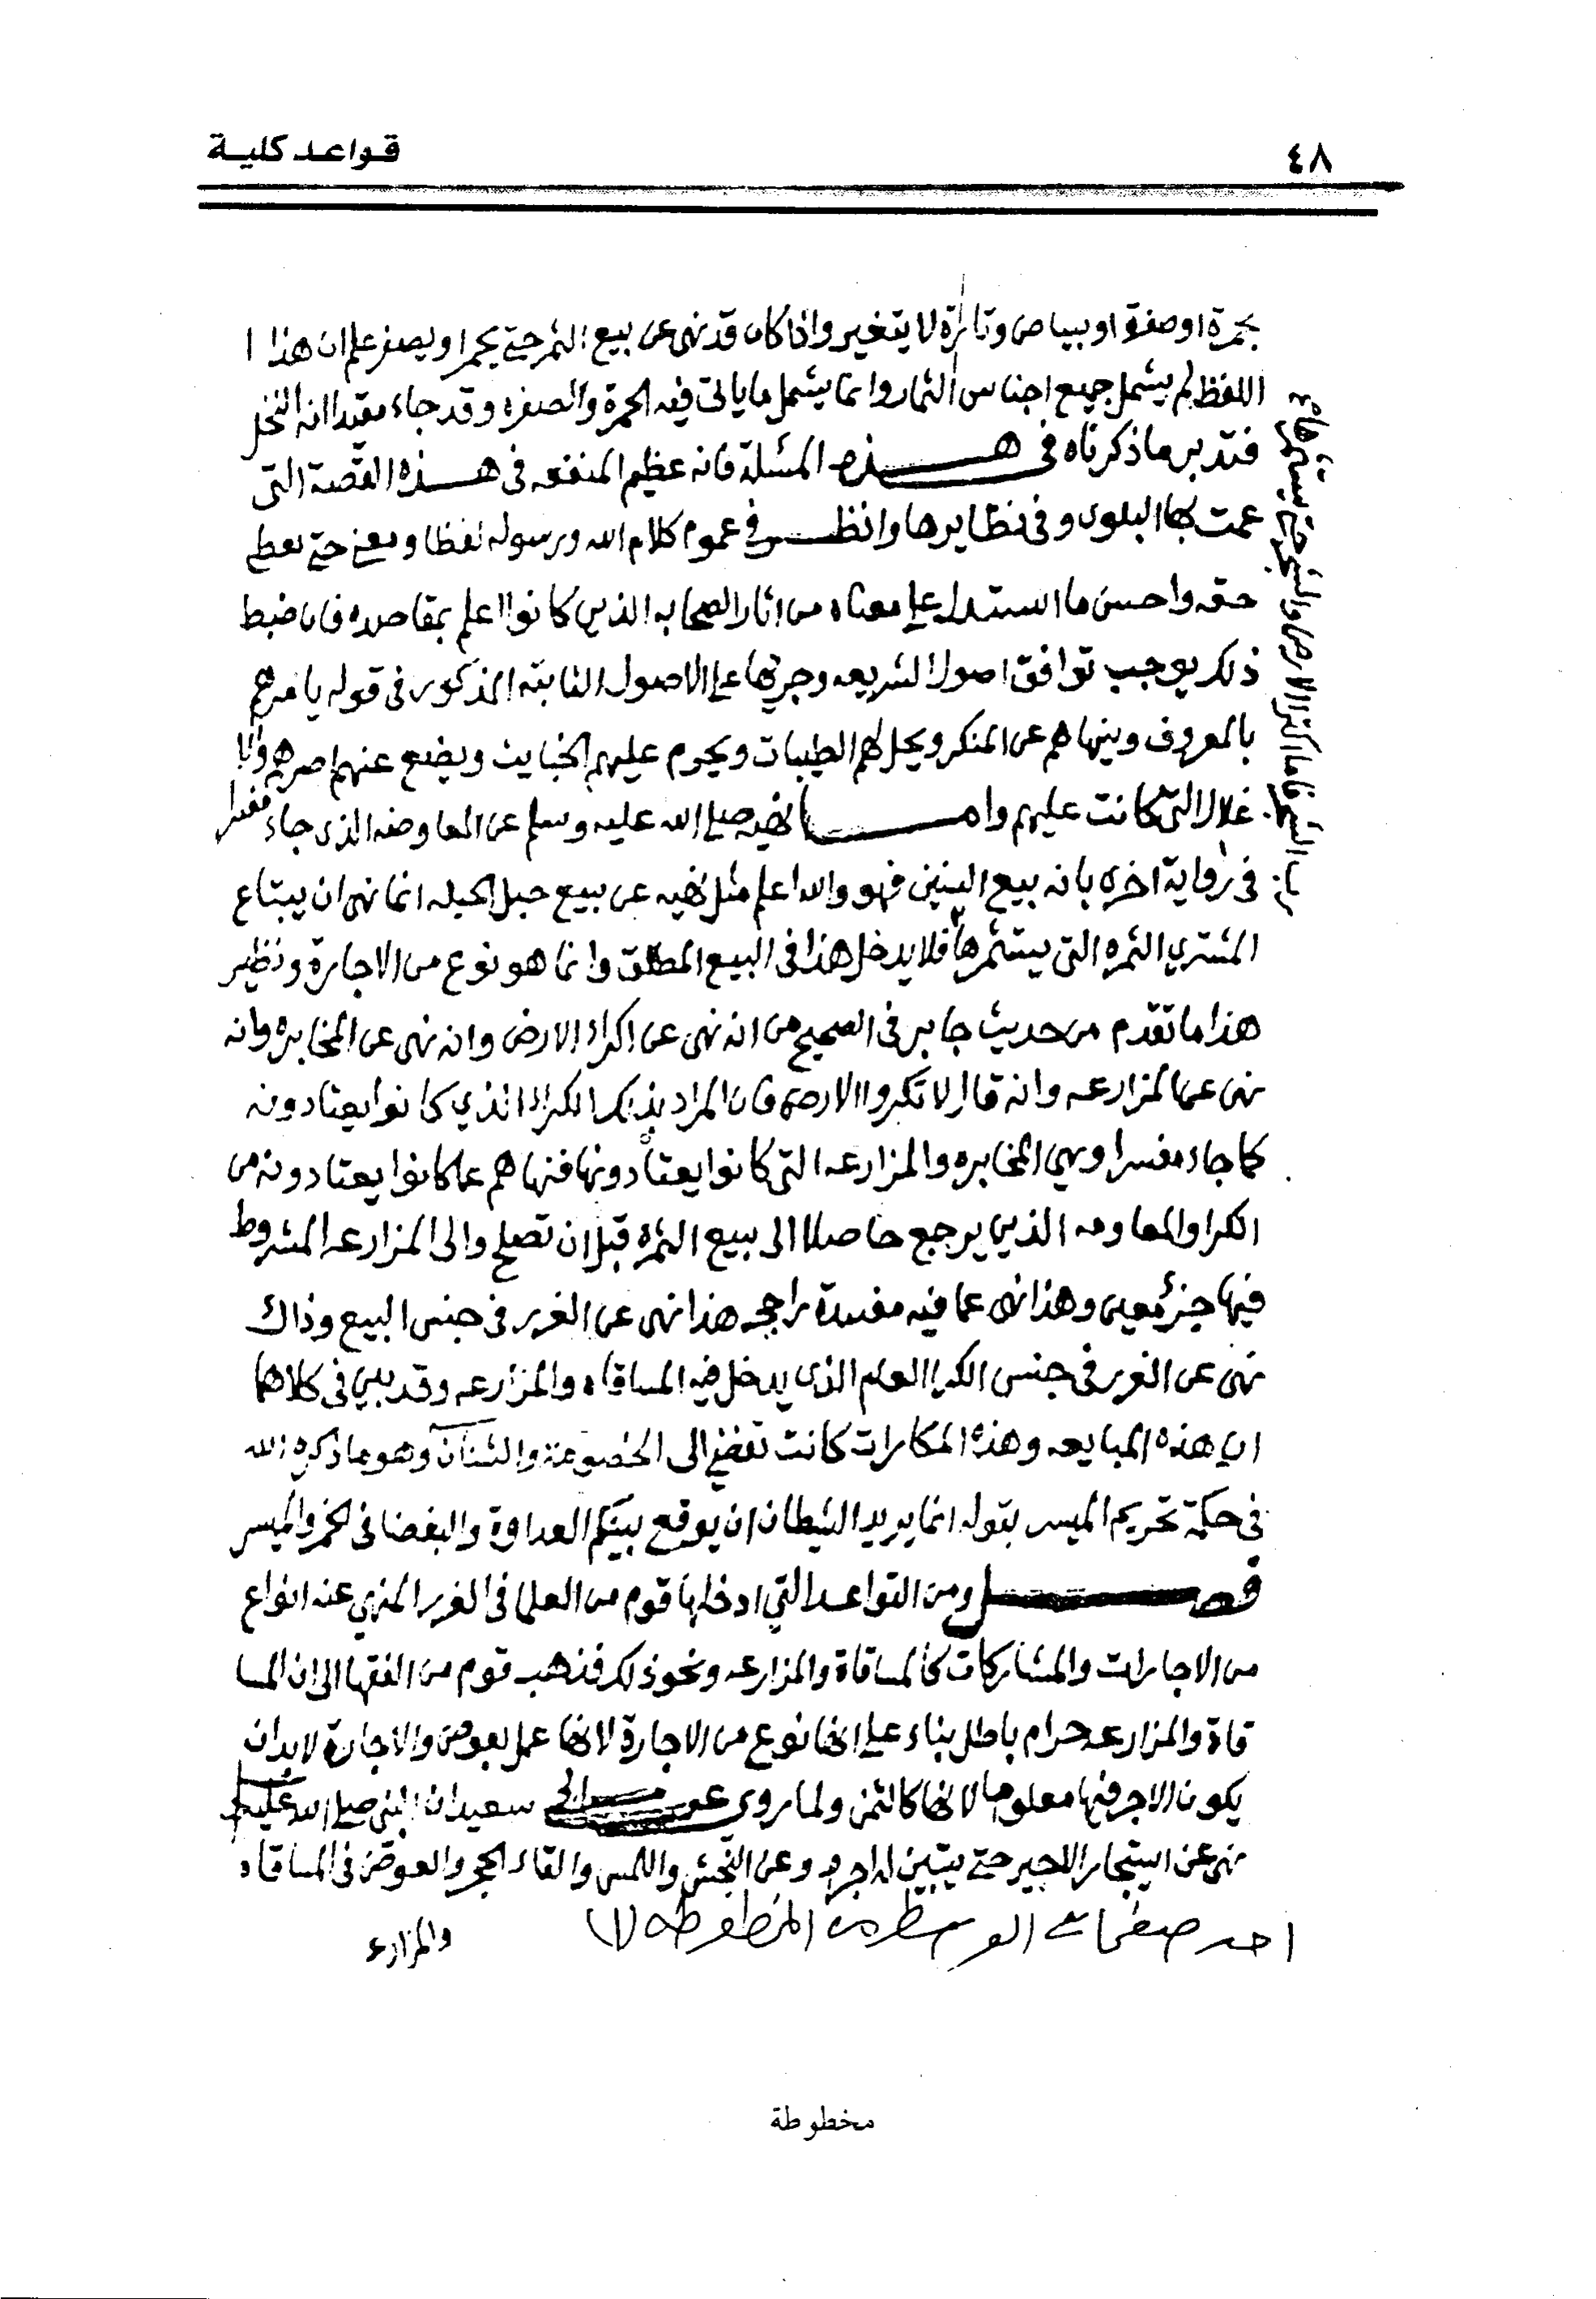 ٤٨
قواعد كلية
بحمرة او صفرة او ببياض وتارة لا يتغير واذا كان قد نهى عن بيع الثمر حتى يحمر او يصفر علم ان هذا ا
اللفظ لم يشمل جميع اجناس الثمار وانما يشمل ما ياتي فيه الحمرة والصفره وقد جاء مقيدا انه النخل
فتدبر ما ذكرناه في هذه المسئلة فانه عظيم المنفعه في هذه القصة التي
عمت بها البلوى وفي نظايرها وانظر في عموم كلام الله ورسوله لفظا ومعنى حتى تعطى
حقه واحسن ما استدل على معناه من اثار الصحابه الذين كانوا اعلم بمقاصده فان ضبط
ذلك يوجب توافق اصول الشريعه وجريها على الاصول الثابته المذكوره في قوله يامرهم
بالمعروف وينهاهم عن المنكر ويحل لهم الطيبات ويحرم عليهم الخبايث ويضع عنهم اصرهم والا
غلال التي كانت عليهم واما نهيه صلى الله عليه وسلم عن المعاومه الذي جاء مفسرا
في رواية اخرى بانه بيع السنين فهو والله اعلم مثل نهيه عن بيع حبل الحبله انما نهى ان يبتاع
المشتري الثمره التي يستثمرها فلا يدخل هذا في البيع المطلق وانما هو نوع من الاجارة ونظير
هذا ما تقدم من حديث جابر في الصحيح من انه نهى عن اكراء الارض وانه نهى عن المخابره وانه
نهى عن المزارعه وانه قال لا تكروا الارض فان المراد بذلك الكراء الذي كانوا يعتادونه
كما جاء مفسرا وهي المخابره والمزارعه التي كانوا يعتادونها فنهاهم عما كانوا يعتادونه من
الكرا والمعاومه الذي يرجع حاصلا الى بيع الثمره قبل ان تصلح والى المزارعه المشروط
فيها جزء معين وهذا نهى عما فيه مفسدة راجحه هذا نهى عن الغرر في جنس البيع وذاك
نهى عن الغرر في جنس الكرا العام الذي يدخل فيه المساقاه والمزارعه وقد بين في كلاهما
ان هذه المبايعه وهذه المكارات كانت تفضي الى الخصومة والشنآن وهو ما ذكره الله
في حكمة تحريم الميسر بقوله انما يريد الشيطان ان يوقع بينكم العداوة والبغضا في الخمر والميسر
فصل ومن القواعد التي ادخلها قوم من العلما في الغرر المنهي عنه انواع
من الاجارات والمشاركات كالمساقاة والمزارعه ونحو ذلك فذهب قوم من الفقها الى ان المسا
قاة والمزارعه حرام باطل بناء على انها نوع من الاجارة لانها عمل بعوض والاجارة لا بد ان
يكون الاجر فيها معلوما لانها كالثمن ولما روي عن ابي سعيد ان النبي صلى الله عليه
نهى عن استيجار الاجير حتى يتبين له اجره وعن النجش واللمس والقاء الحجر والعوض في المساقاه
والمزارعه
مخطوطة